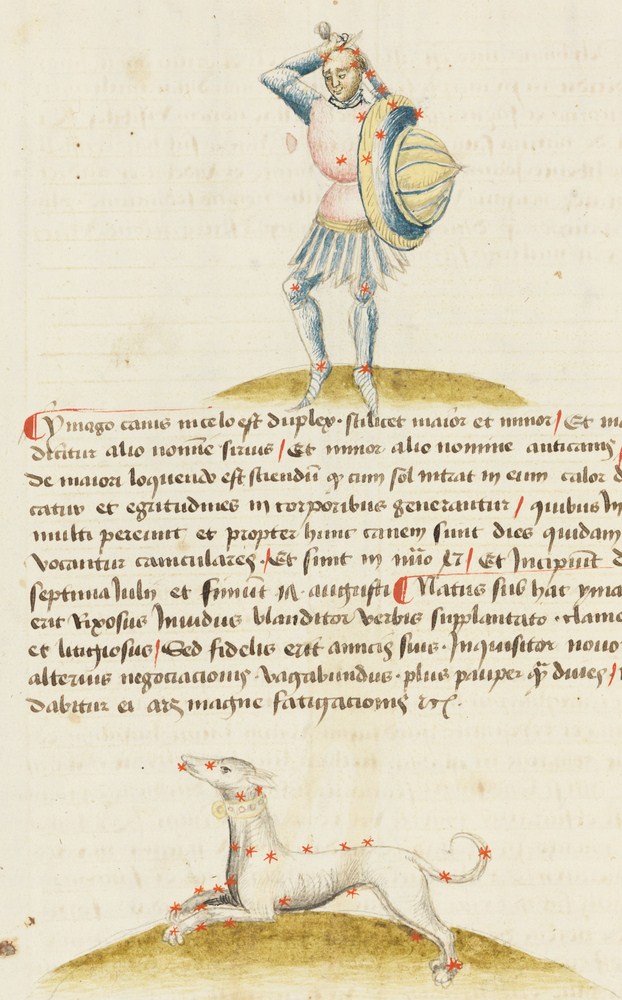 Ymago canis in celo est duplex. scilicet maior et minor / Et m
dicitur alio nomine sirius / Et minor alio nomine anticanis /
de maiori loquendo est sciendū ꝙ cum sol intrat in eum calor d
et egritudines in corporibus generantur / quibus
multi pereunt et propter hunc canem sunt dies quidam
vocantur caniculares. Et sunt in Et Incipiūt d
septima Iulii et finiūt augusti Natus sub hac yma
erit Rixosus Inuidus blanditor verbis supplantato. clamo
et litigiosus / Sed fidelis erit amicis suis. Inquisitor nouo
alterius negociacionis. vagabundus. plus pauper ꝙ̄ diues /
dabitur ei ars magne fatigacionis